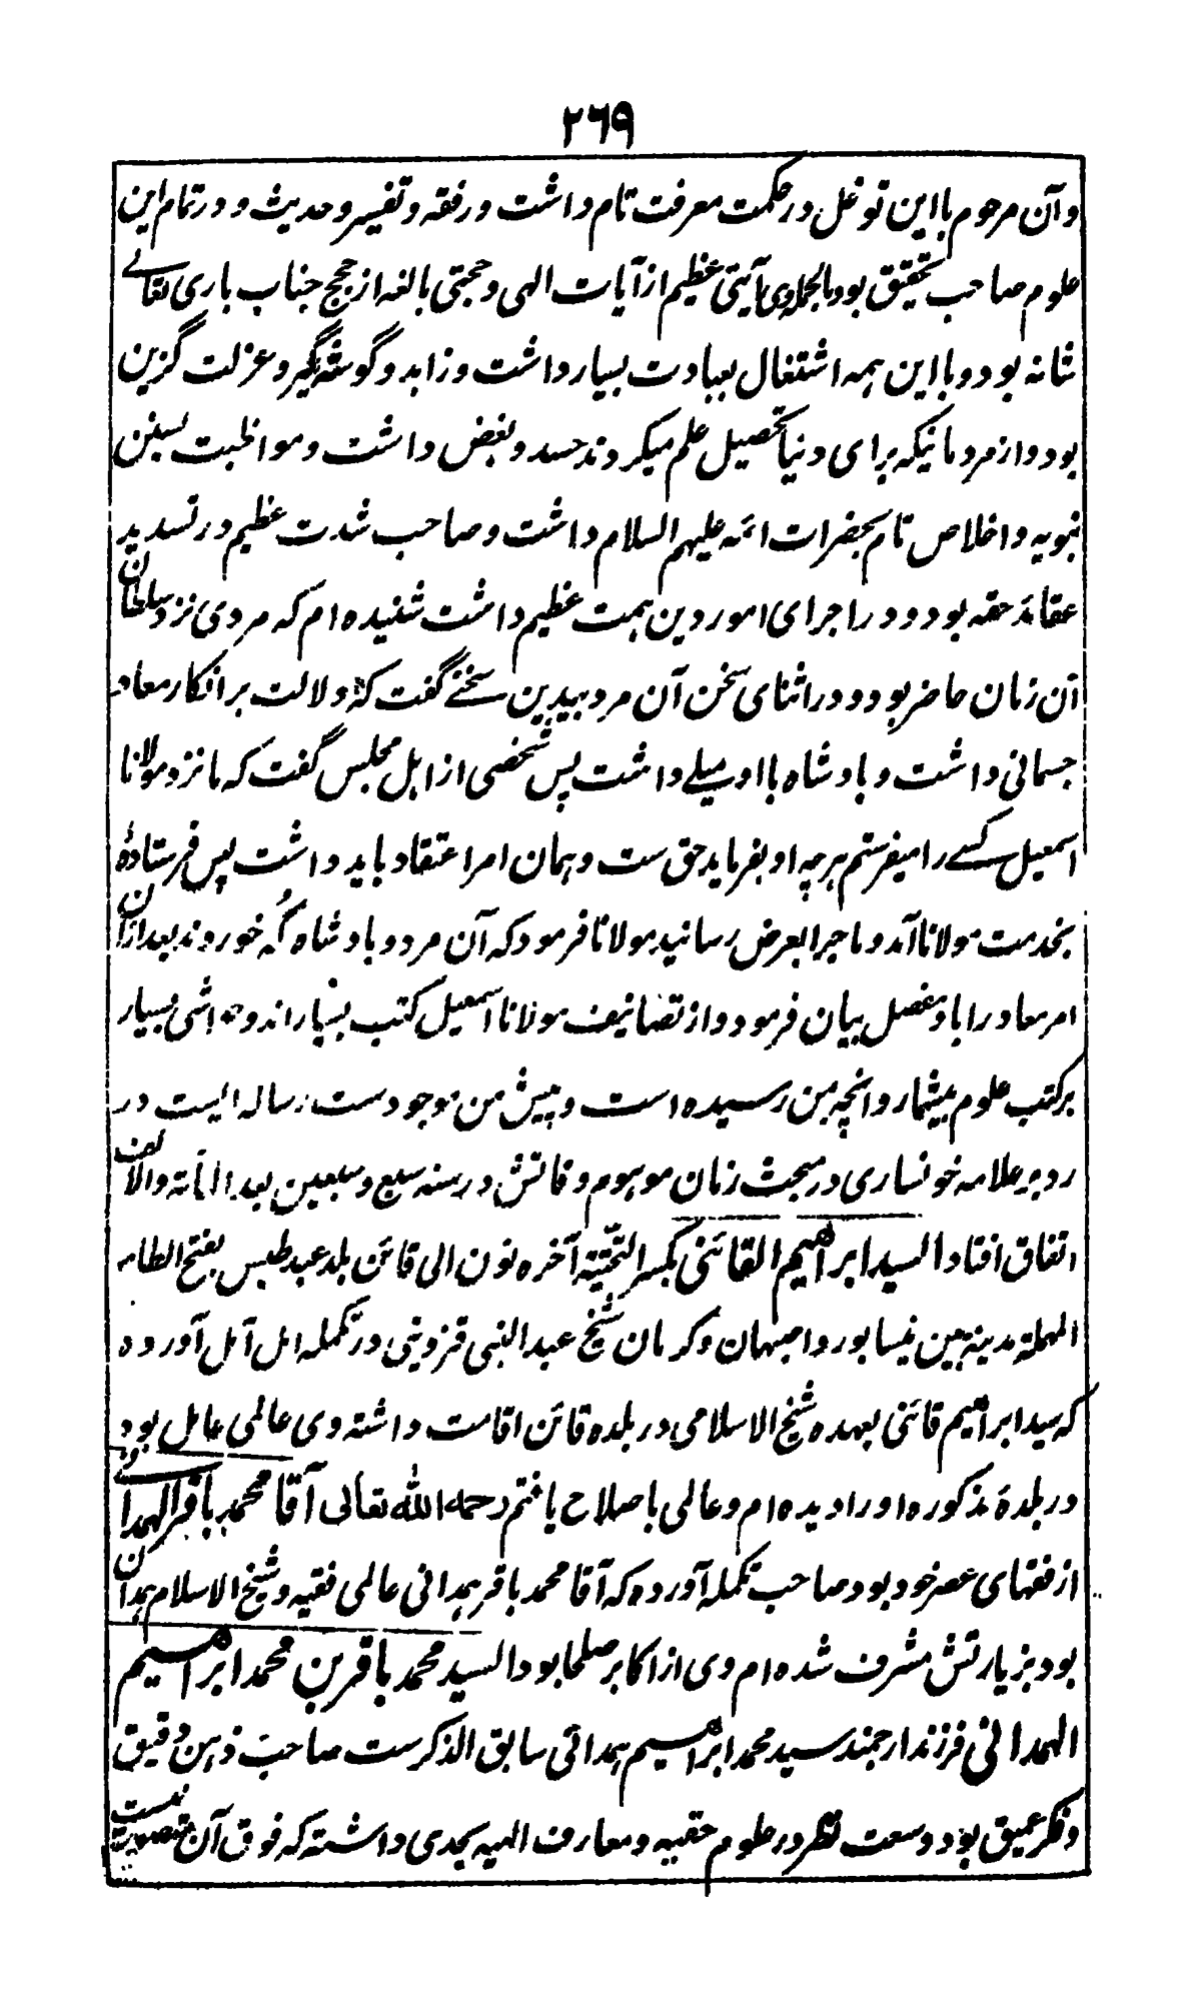 ۲۶۹
و آن مرحوم با این توغل در حکمت معرفت تام داشت و رفقه و تفسیر و حدیث و در تمام این
علوم صاحب تحقیق بود بالجمله وی آیتی عظیم از آیات الهی و حجتی بالغه از حجج جناب باری تعالے
شانه بود و با این همه اشتغال بعبادت بسیار داشت و زاهد و گوشه گیر و عزلت گزین
بود و از مردمانیکه برای دنیا تحصیل علم میکردند حسد و بغض داشت و مواظبت بسنن
نبویه و اخلاص تام بحضرات ائمه علیهم السلام داشت و صاحب شدت عظیم در تسدید
عقائد حقه بود و در اجرای امور دین همت عظیم داشت شنیده ام که مردی نزد سلطان
آن زمان حاضر بود و در اثنای سخن آن مرد بیدین سخنے گفت که دلالت بر انکار معاد
جسمانی داشت و بادشاه با او میلے داشت پس شخصی از اهل مجلس گفت که ما نزد مولانا
اسمعیل کسے را میفرستم هرچه او بفرماید حق ست و همان امر اعتقاد باید داشت پس فرستادهٔ
بخدمت مولانا آمد و ماجرا بعرض رسانید مولانا فرمود که آن مرد و بادشاه گُه خوردند بعد ازان
امر معاد را با و مفصل بیان فرمود و از تصانیف مولانا اسمعیل کتب بسیار اند و حواشی بسیار
بر کتب علوم بیشمار و انچه بمن رسیده است و پیش من موجودست رساله ایست در
رد بر علامه خونساری در مبحث زمان موهوم وفاتش در سنه سبع و سبعین بعد المأته والالف
اتفاق افتاد السید ابراهیم القائنی بکسر التحتیة آخره نون الی قائن بلد عبد طبس بفتح الطاء
المهملة مدینة بین نیسابور و اصبهان و کرمان شیخ عبد النبی قزوینی در تکمله امل آمل آورده
که سید ابراهیم قائنی بعهده شیخ الاسلامی در بلده قائن اقامت داشته وی عالمی عامل بود
در بلدهٔ مذکوره او را دیده ام و عالمی با صلاح یافتم رحمه الله تعالی آقا محمد باقر الهمدانے
از فقهای عصر خود بود صاحب تکمله آورده که آقا محمد باقر همدانی عالمی فقیه و شیخ الاسلام همدان
بود بزیارتش مشرف شده ام وی از اکابر صلحا بود السید محمد باقر بن محمد ابراهیم
الهمدانی فرزند ارجمند سید محمد ابراهیم همدانی سابق الذکرست صاحب ذهن دقیق
و فکر عمیق بود و وسعت نظر در علوم حقیه و معارف الهیه بحدی داشته که فوق آن متصور نیست